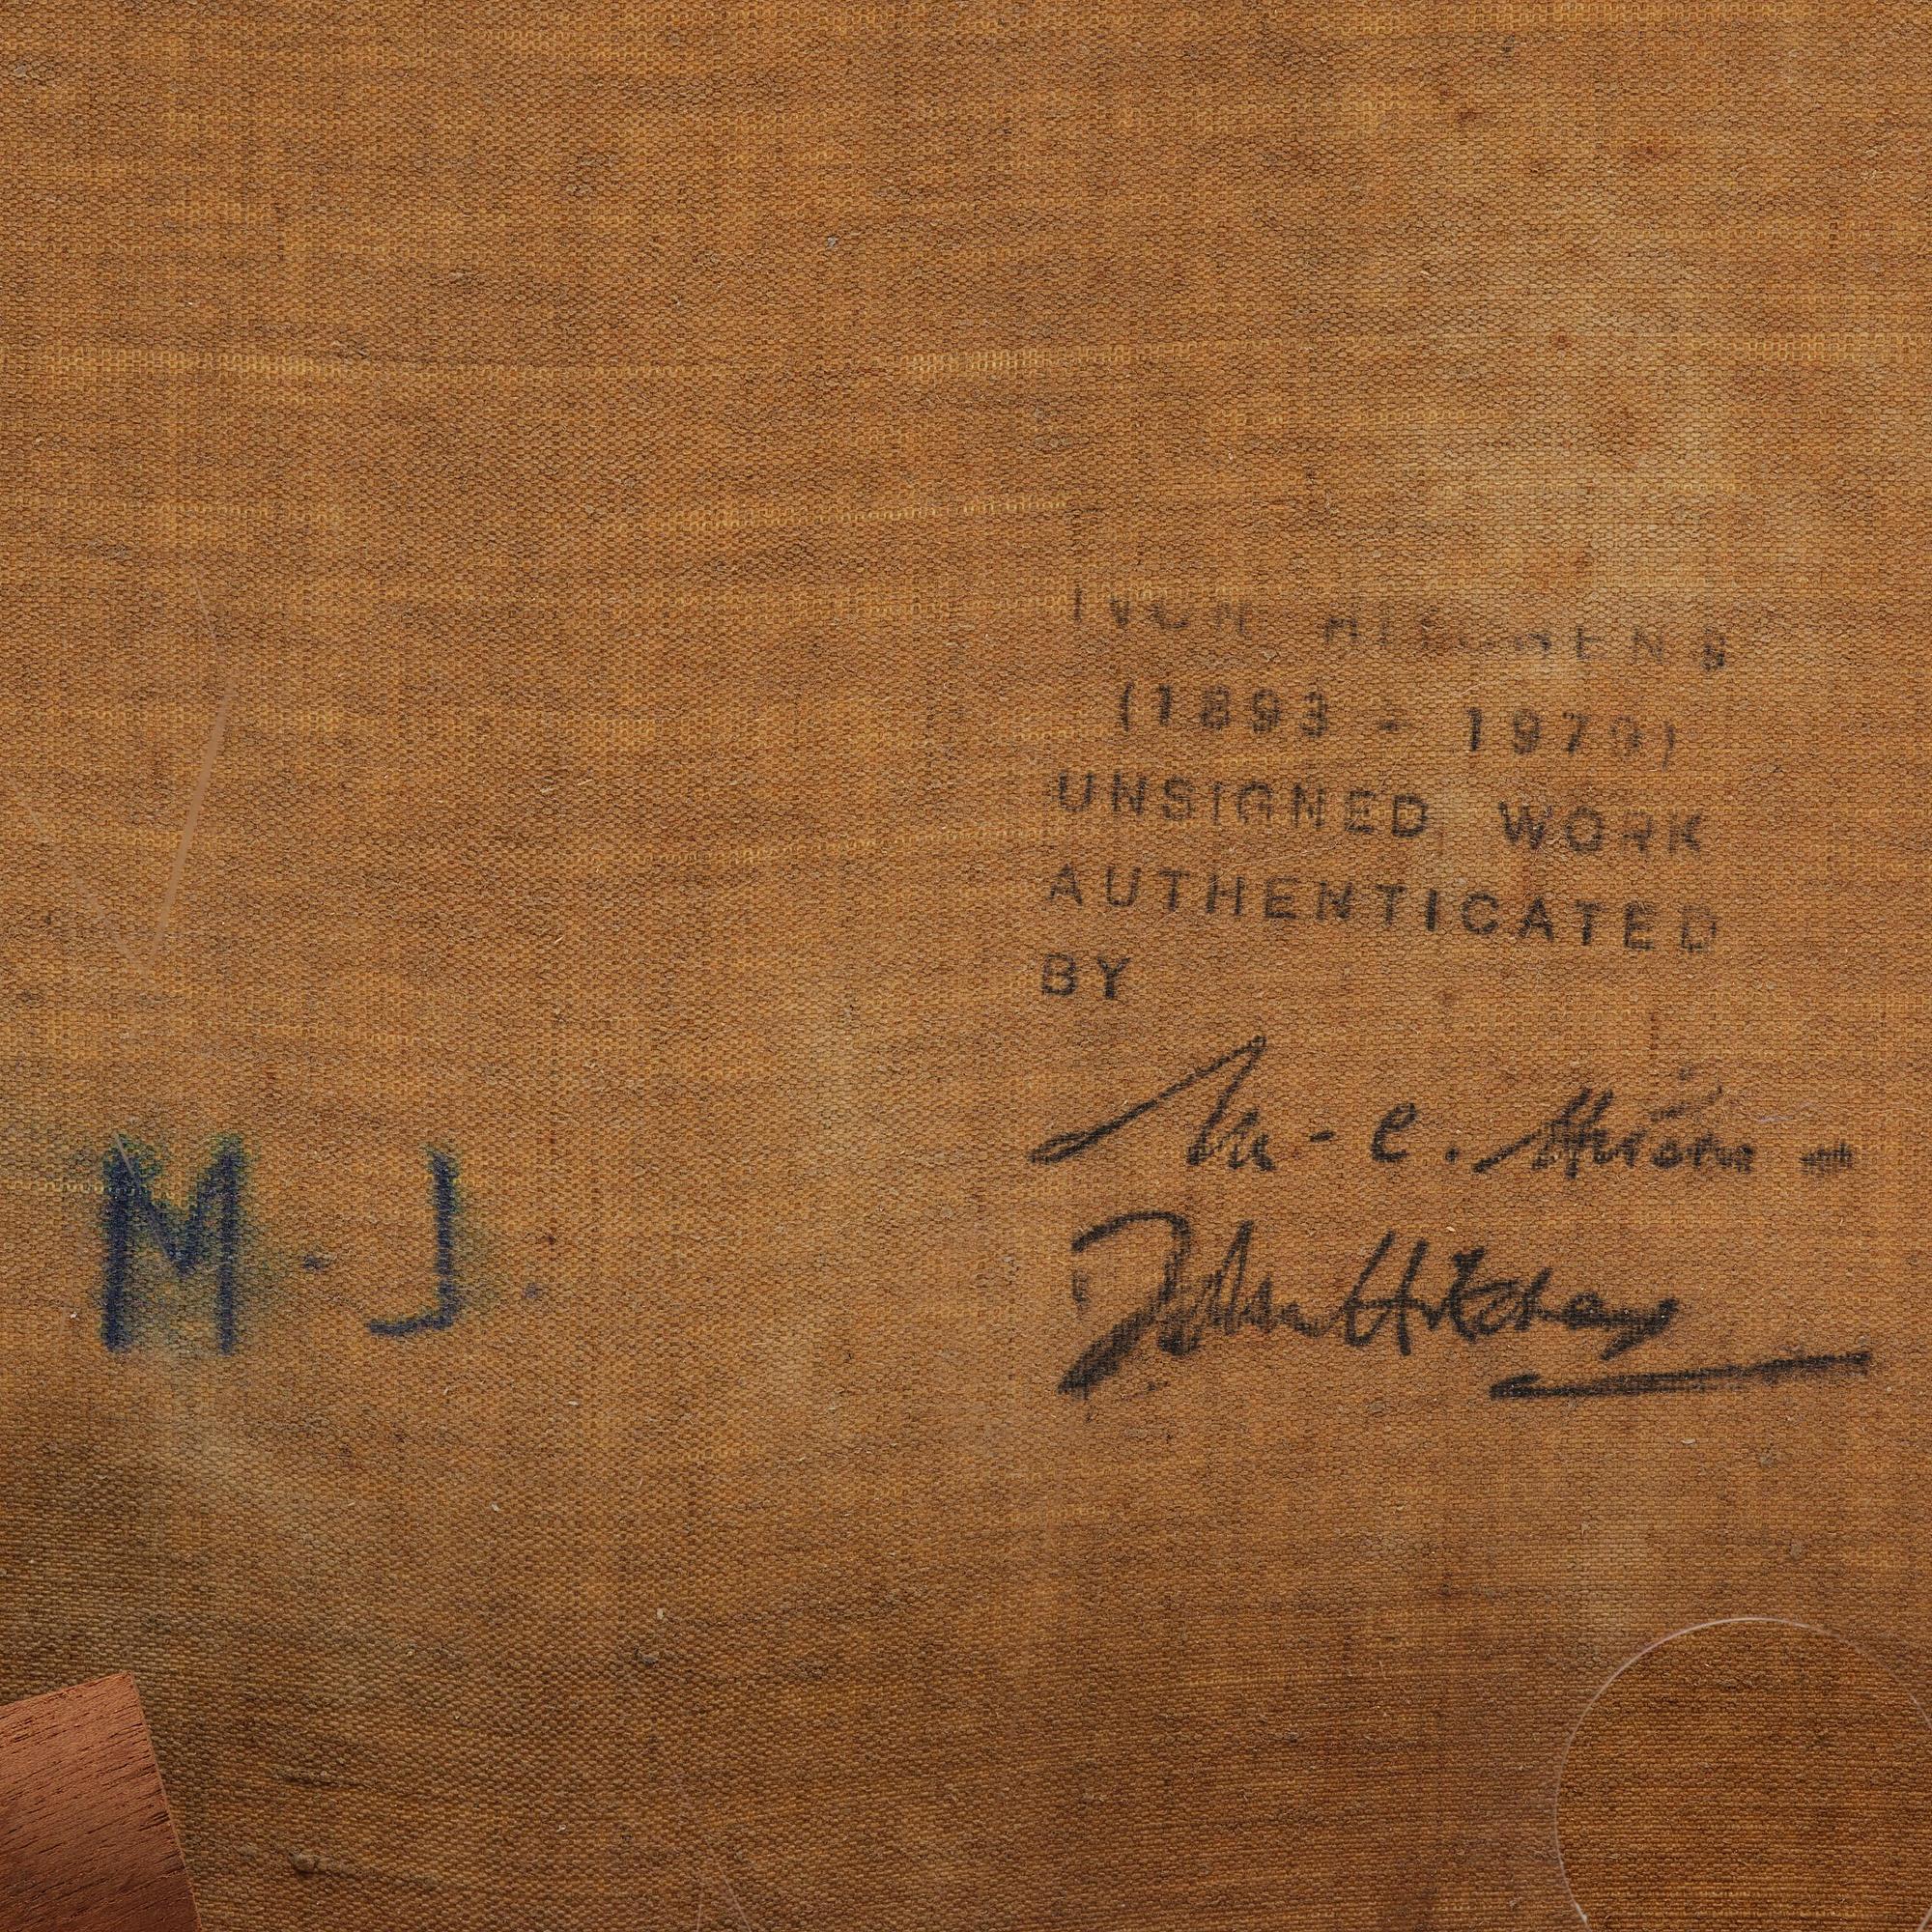 IVOR HITCHENS
(1893 - 1979)
UNSIGNED WORK
AUTHENTICATED
BY
M-J.
John Hitchens